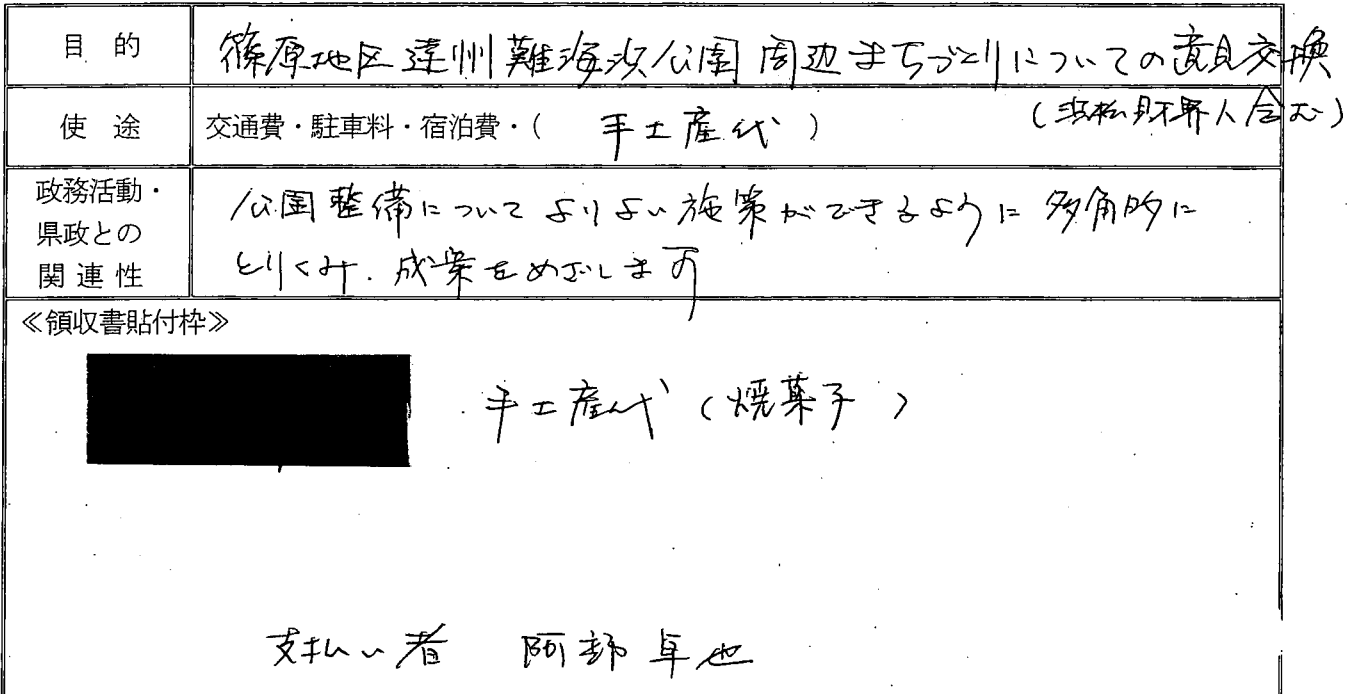 目 的
篠原地区遠州灘海浜公園周辺まちづくりについての意見交換
(浜松財界人含む)
使 途
交通費・駐車料・宿泊費・( 手土産代 )
政務活動・
県政との
関連性
公園整備についてよりよい施策ができるように多角的に
とりくみ、成案をめざします
≪領収書貼付枠≫
手土産代 (焼菓子)
支払い者 阿部卓也